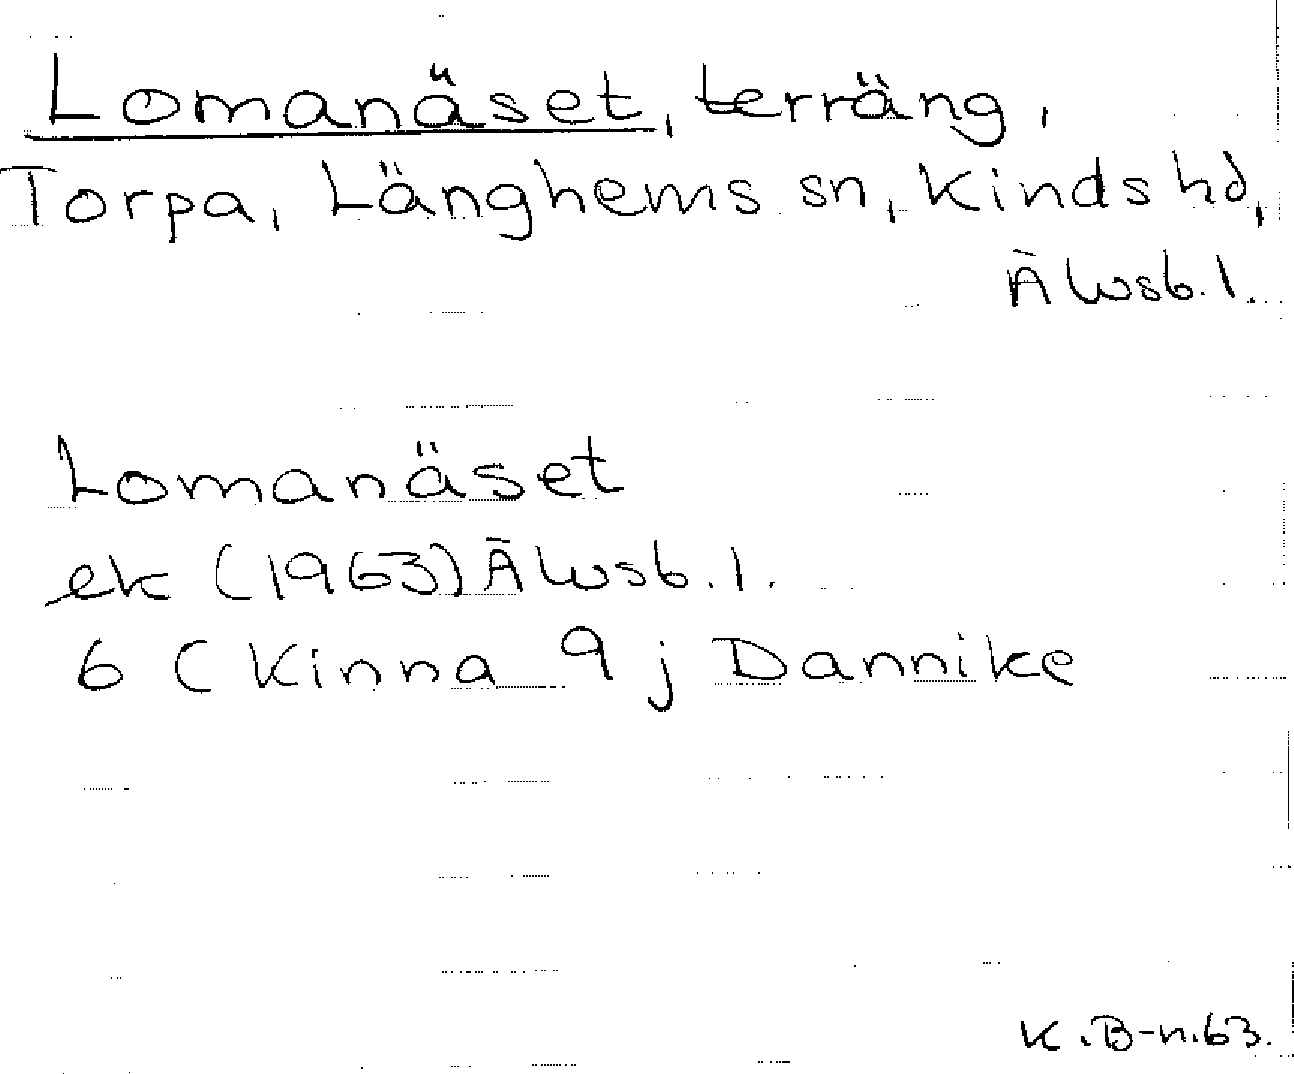 Lomanäset, terräng,
Torpa, Länghems sn, Kinds hd,
Älvsb. l.
Lomanäset
ek (1963) Älvsb. l.
6 ( Kinna 9 j Dannike
K.B-n.63.